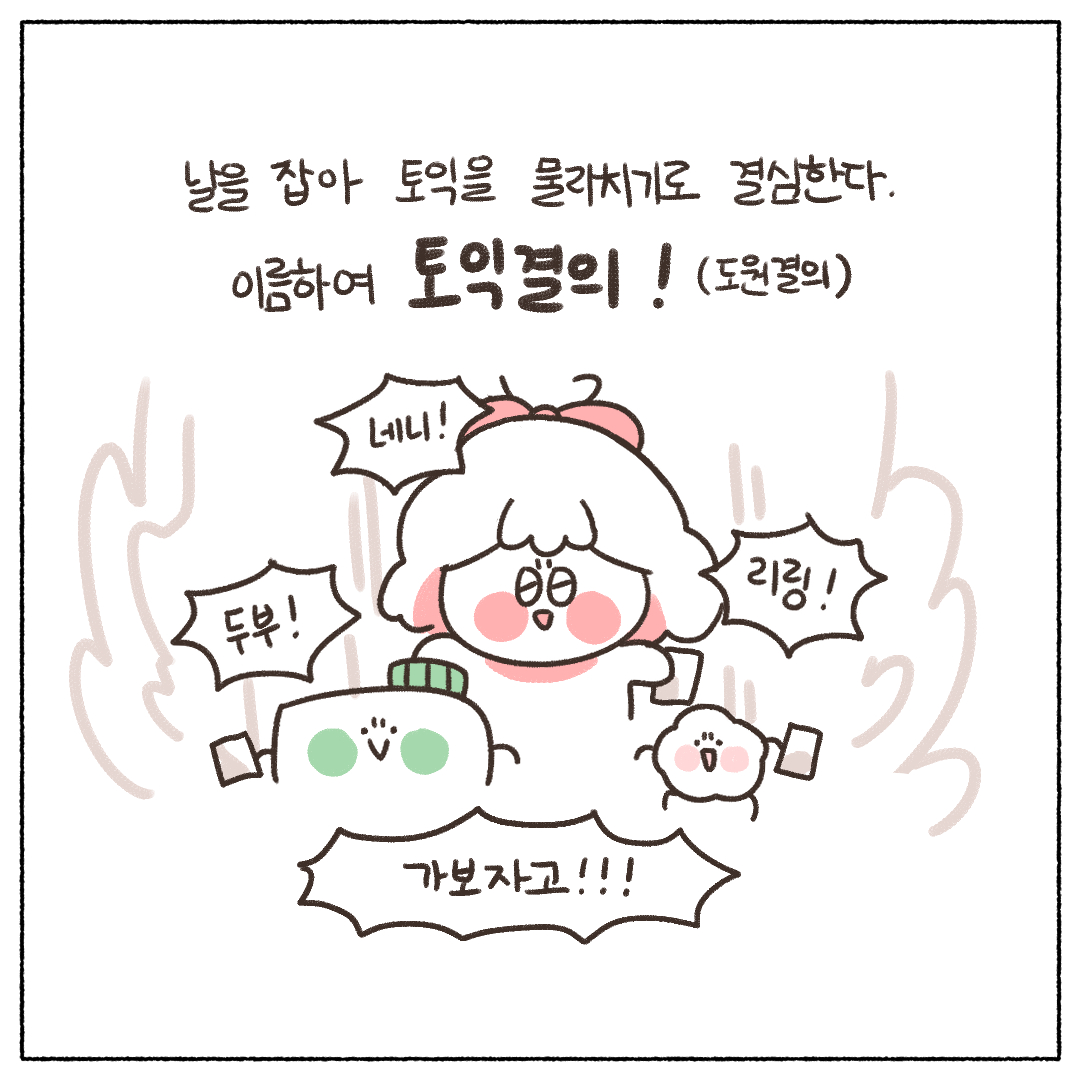 날을 잡아 토익을 물리치기로 결심한다.
이름하여 토익결의! (도원결의)
네니!
리링!
두부!
가보자고!!!